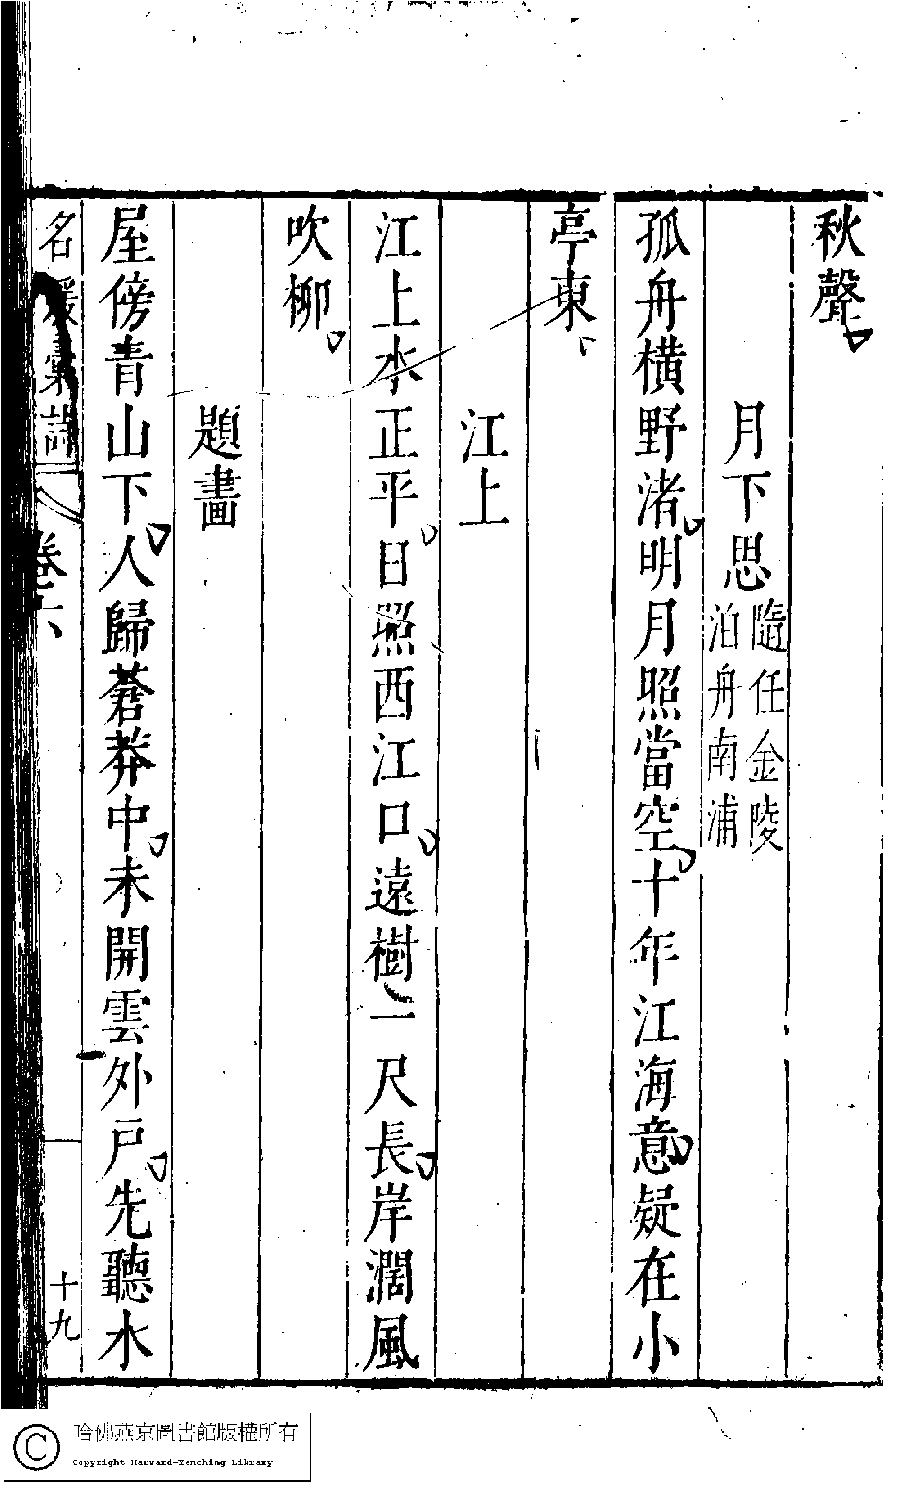 秋聲
月下思
隨任金陵
泊舟南浦
孤舟橫野渚明月照當空十年江海意疑在小
亭東
江上
江上水正平日照西江口遠樹一尺長岸濶風
吹柳
題畵
屋傍青山下人歸蒼莽中未開雲外戸先聽水
名媛彙詩
卷六
十九
哈佛燕京圖書館版權所有
Copyright Harvard-Yenching Library